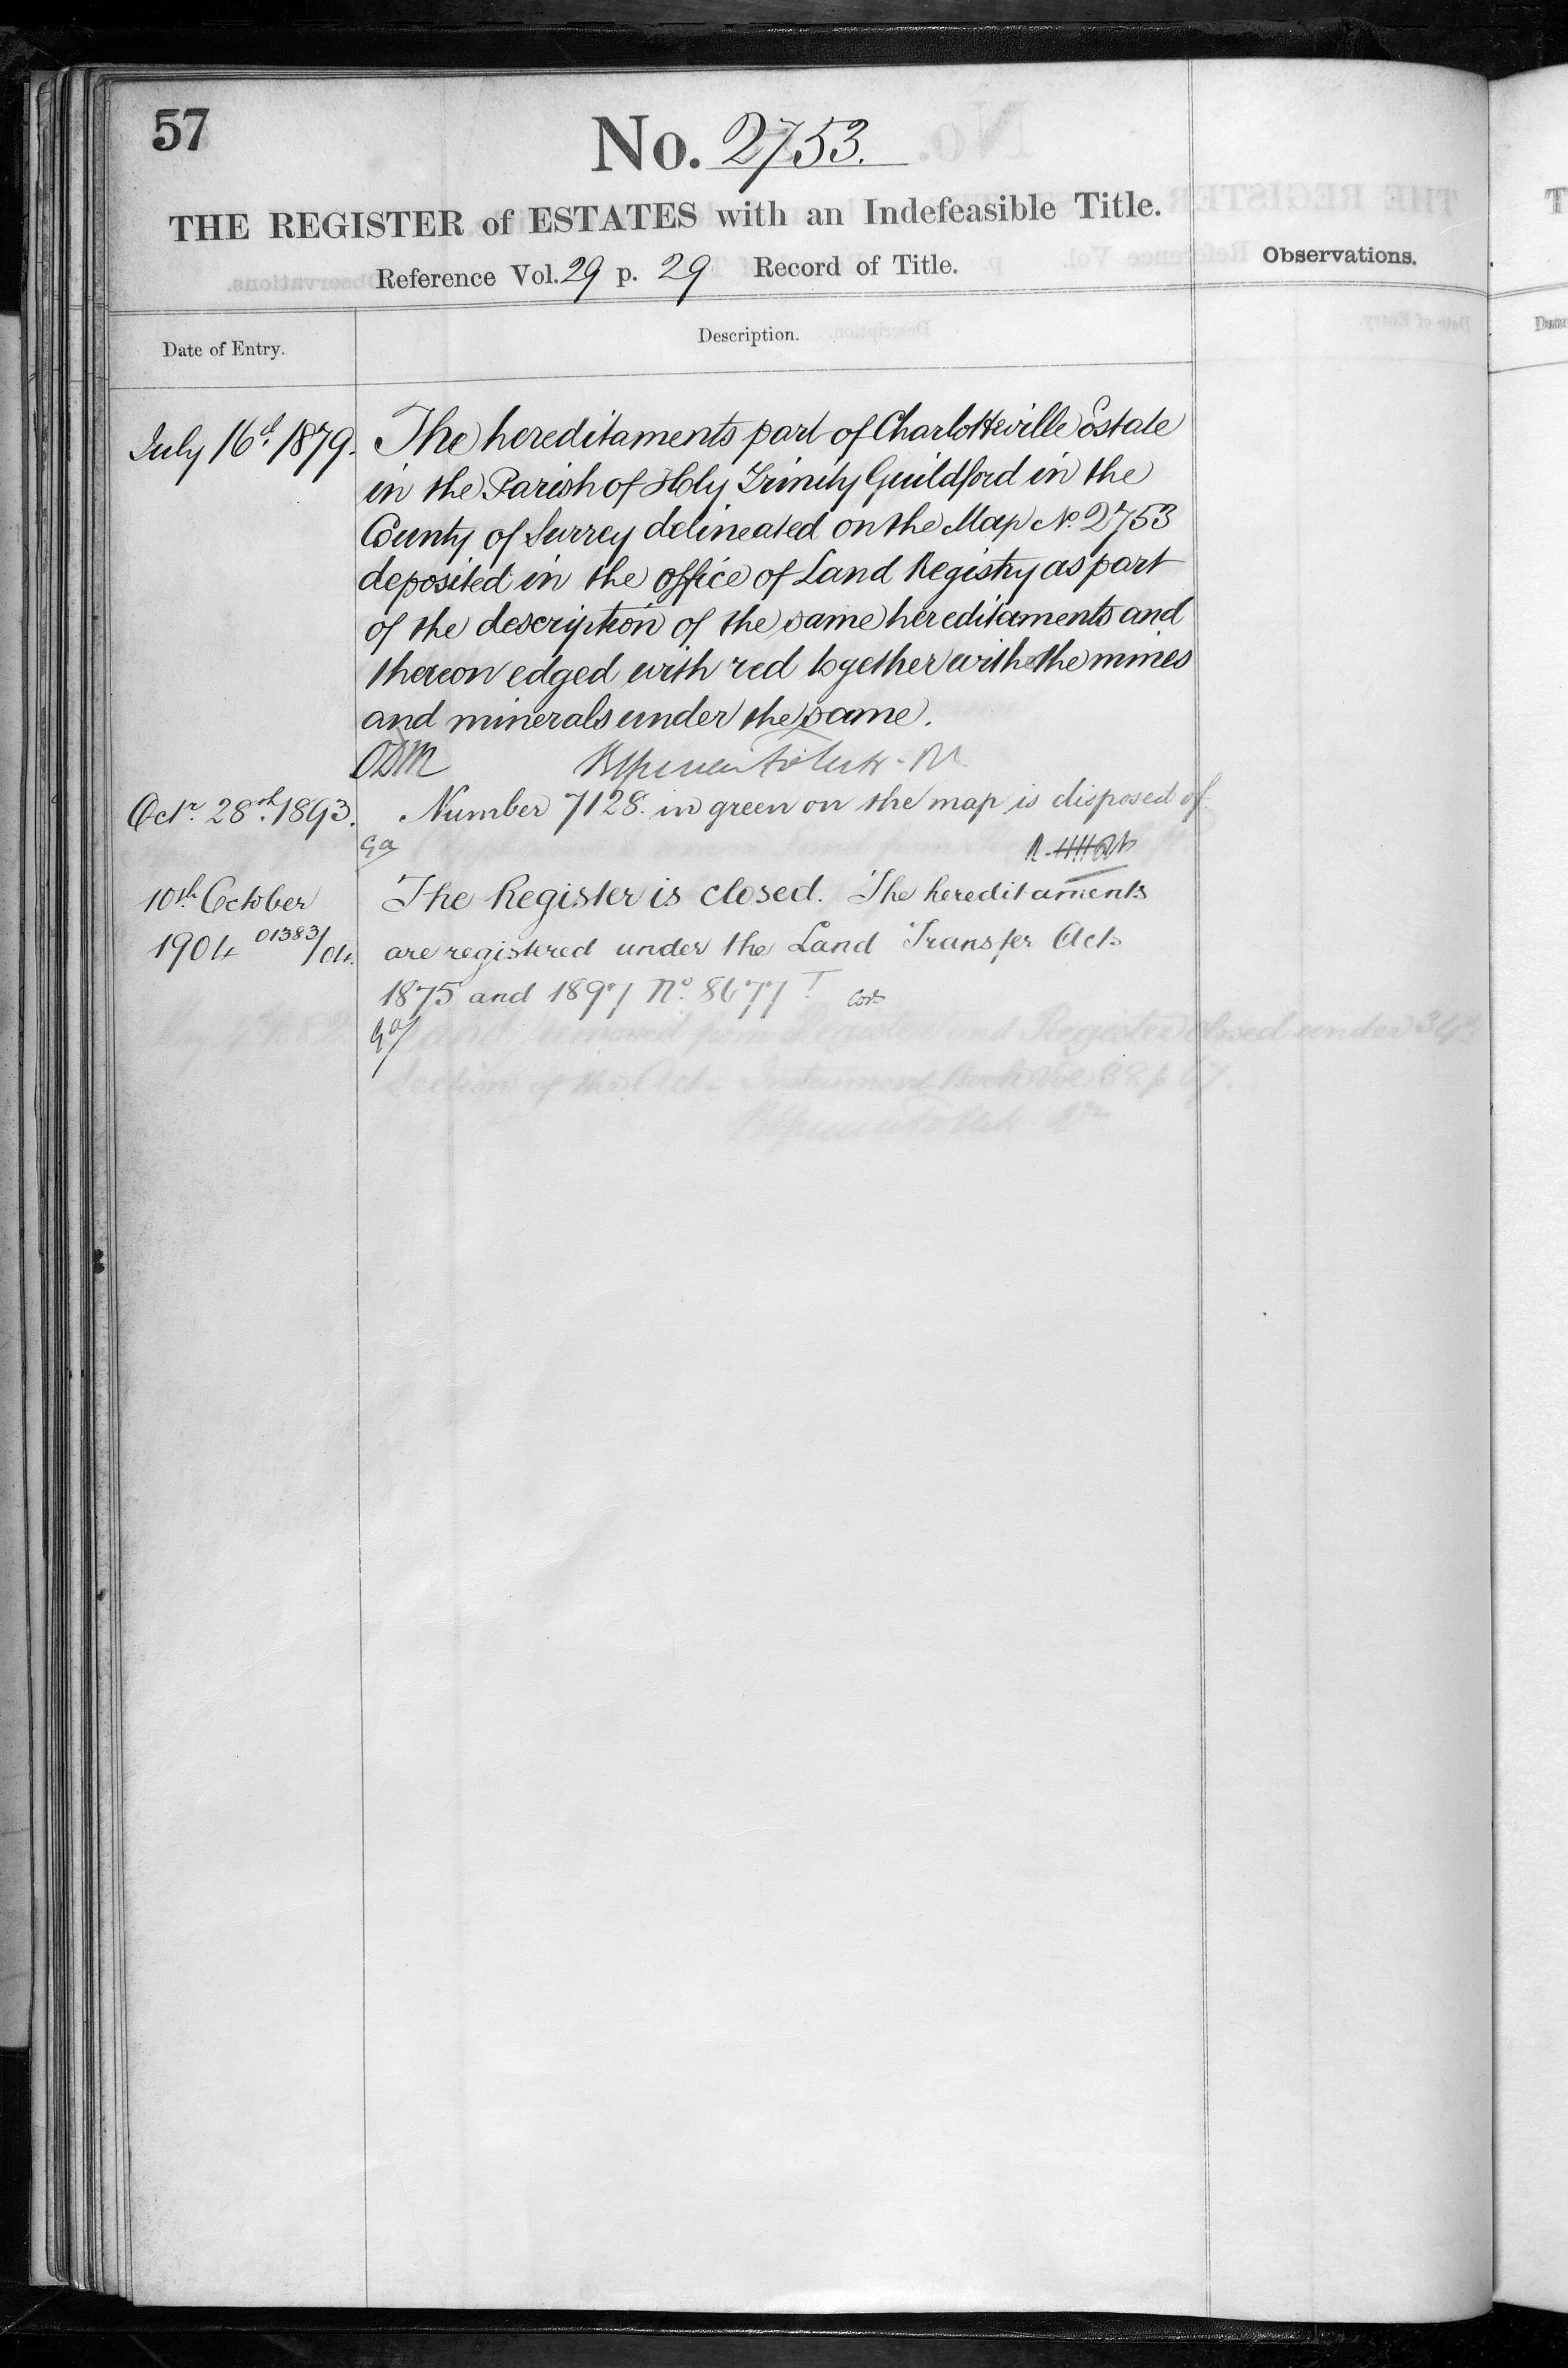 57
No. 2753.
THE REGISTER of ESTATES with an Indefeasible Title.
Reference Vol. 29 p. 29 Record of Title.
Observations.
Date of Entry.
Description.
July 16th 1879. The hereditaments part of Charlotteville Estate
in the Parish of Holy Trinity Guildford in the
County of Surrey delineated on the Map No. 2753
deposited in the office of Land Registry as part
of the description of the same hereditaments and
thereon edged with red together with the mines
and minerals under the same.
ODM
Octr. 28th. 1893. Number 7128. in green on the map is disposed of.
Ga
10th October The Register is closed. The hereditaments
1904 01383/04. are registered under the Land Transfer Acts
1875 and 1897 No. 8677
Ga